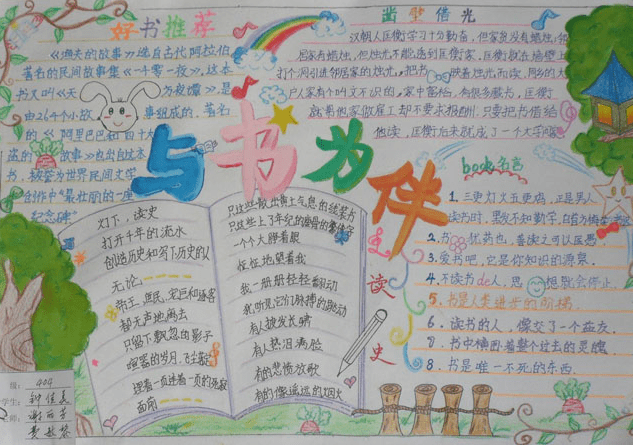 好书推荐
《渔夫的故事》选自古代阿拉伯
著名的民间故事集《一千零一夜》,这本
书又叫《天方夜谭》,是
由264个小故事组成的,著名
的《阿里巴巴和四十大
盗的故事》也出自这本
书,被誉为世界民间文学
创作中"最壮丽的一座
纪念碑"
凿壁借光
汉朝人匡衡学习十分勤奋,但家贫没有蜡烛,邻
居家有蜡烛,但烛光不能透到匡衡家,匡衡就在墙壁上
打个洞引进邻居家的烛光,把书映着烛光而读,同乡的大
户人家有个叫文不识的,家中富裕,有很多藏书,匡衡
就帮他家做雇工却不要求报酬,只要把书借给
他读,匡衡后来就成了一个大学
与书为伴
book名言
1.三更灯火五更鸡,正是男人
读书时,黑发不知勤学早,白首方悔读书迟
2.书犹药也,善读之可以医愚
3.爱书吧,它是你知识的源泉
4.不读书de人,思想就会停止.
5.书是人类进步的阶梯.
6.读书的人,像交了一个益友.
7.书中横卧着整个过去的灵魂
8.书是唯一不死的东西.
读史
灯下,读史
打开千年的流水
创造历史和写下历史的人
无论:
帝王、庶民、宠臣和逐客
都无声地离去
只留下飘忽的影子
喧嚣的岁月、飞尘
埋着一页连着一页的死寂
面前
只这些散出黄土气息的线装书
只这些上了年纪的
一个大睁着眼
怔怔地望着我
我一册册轻轻翻动
我听见它们脉搏的跳动
有人披发长啸
有人热泪满脸
有的悲愤放歌
有的像遥远的烟火
级:404
学生: